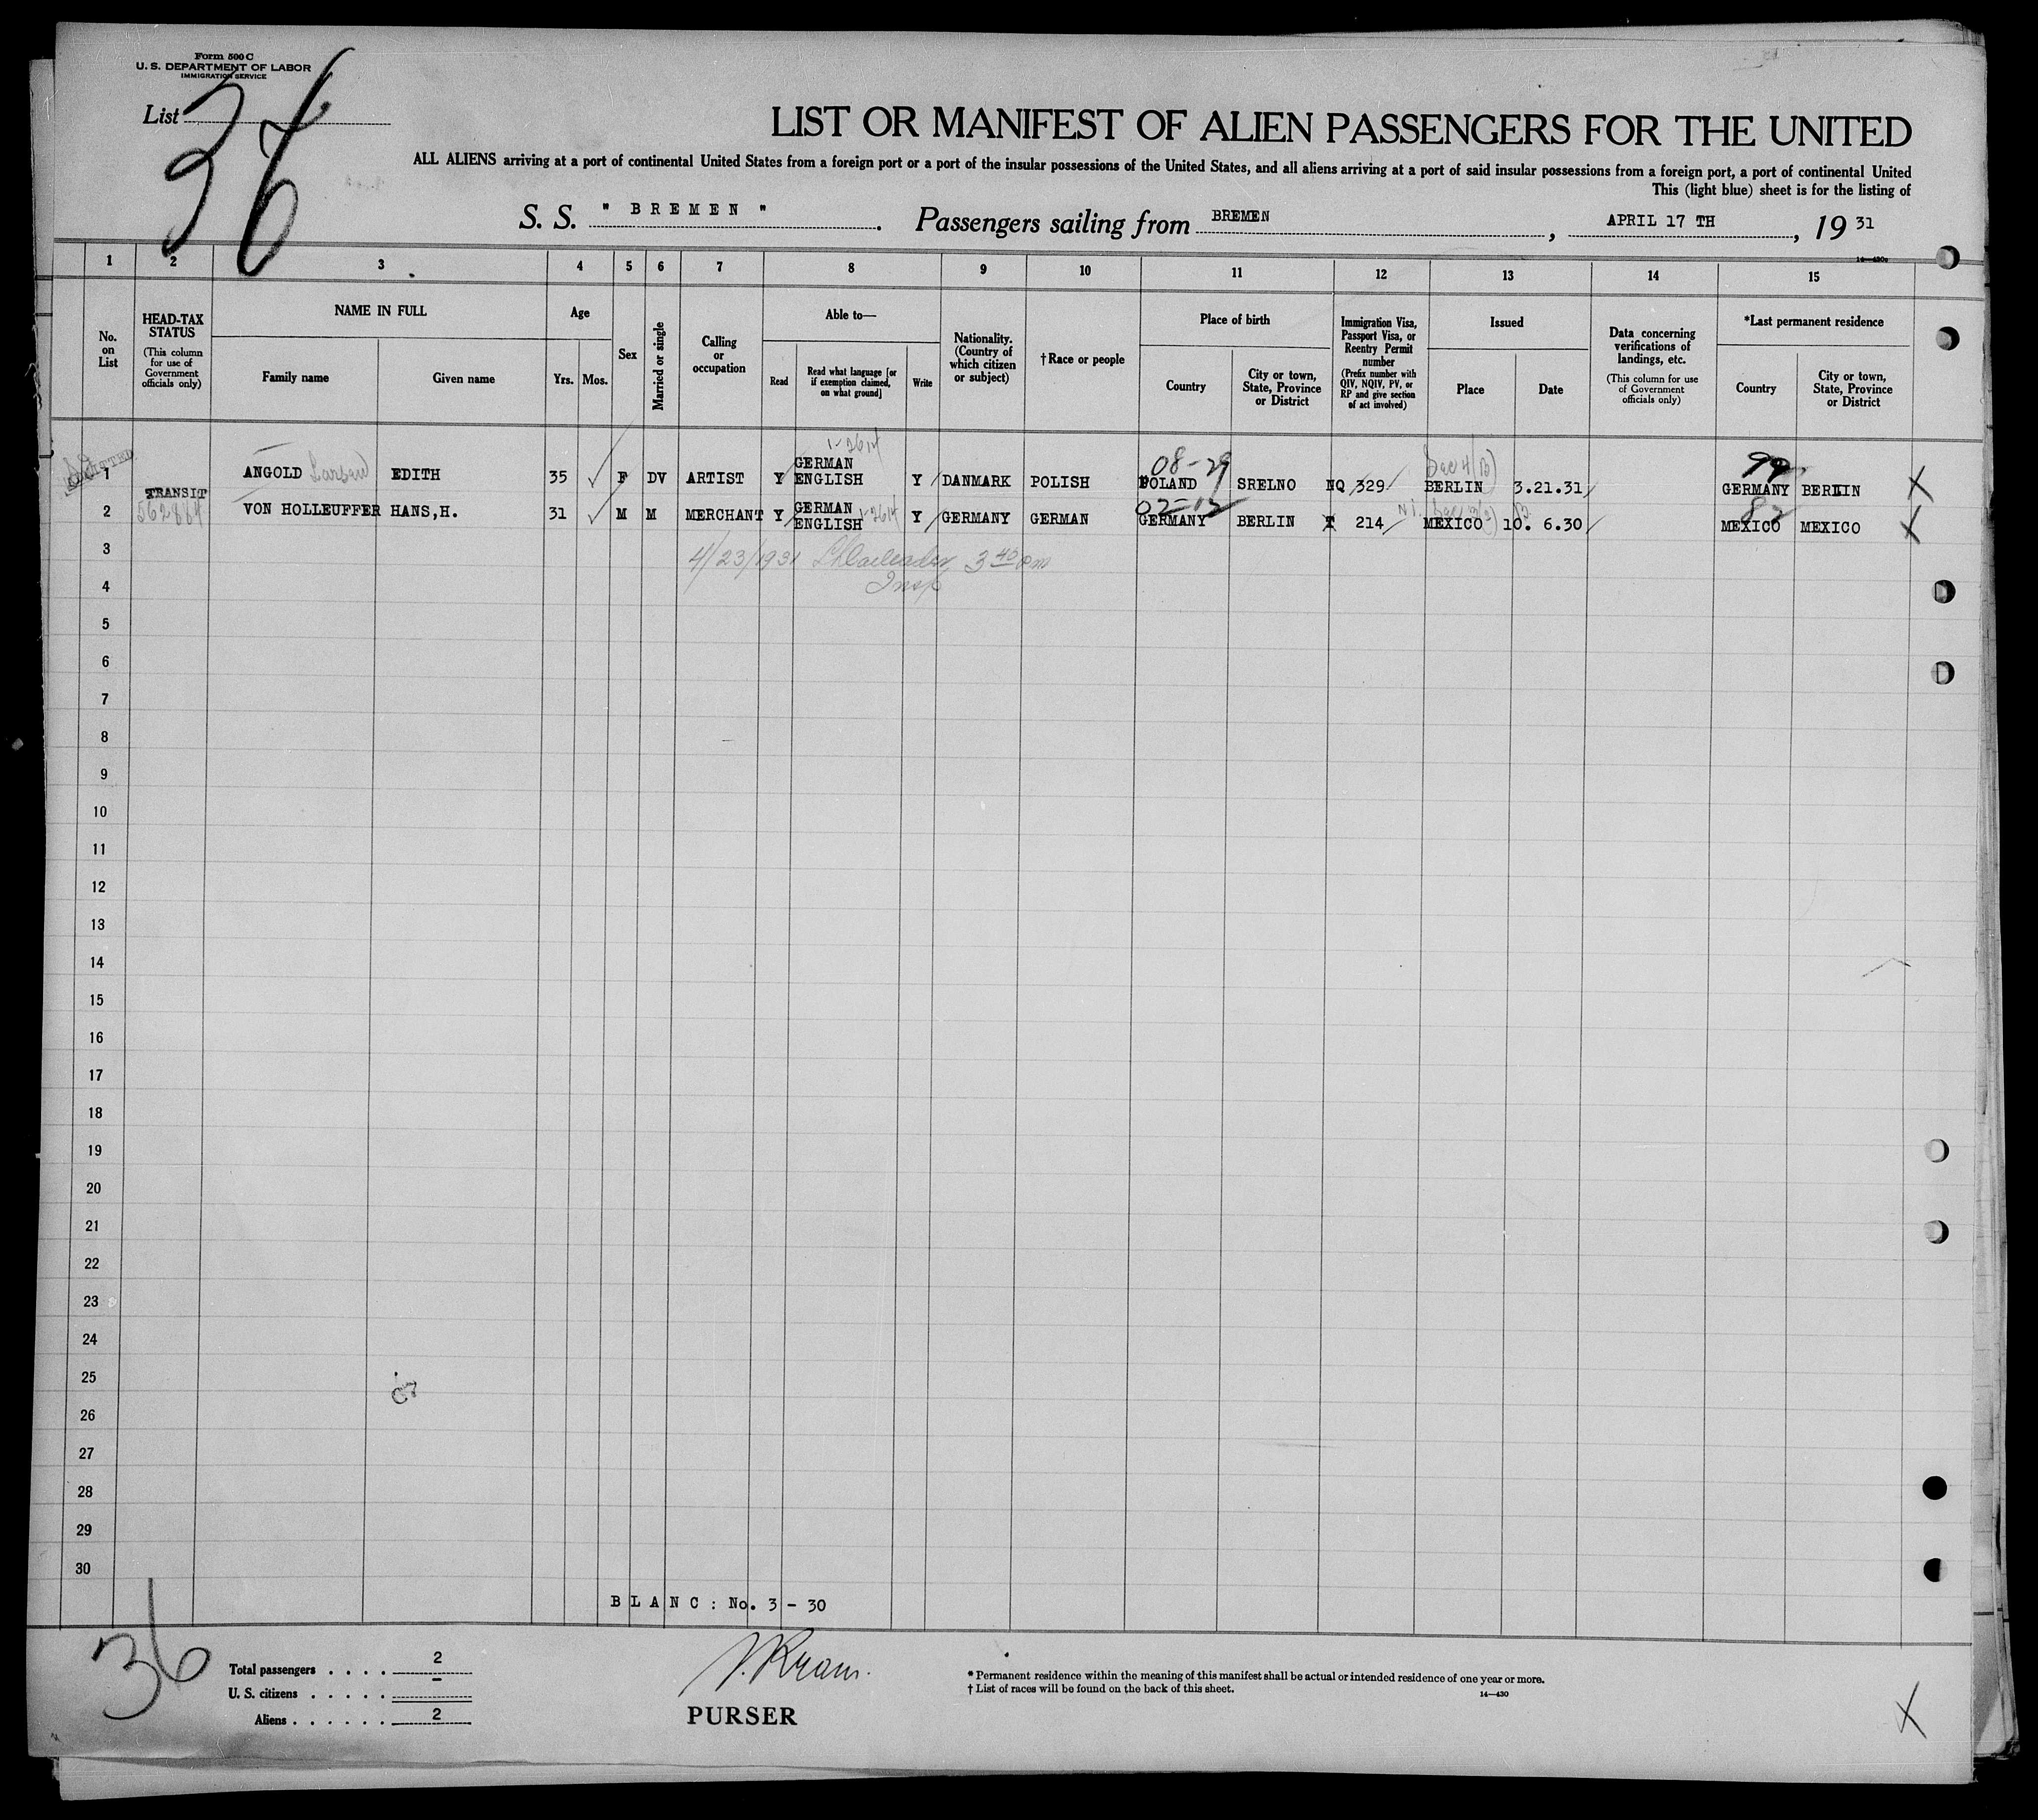 Form 500 C
U. S. DEPARTMENT OF LABOR
IMMIGRATION SERVICE
List
36
LIST OR MANIFEST OF ALIEN PASSENGERS FOR THE UNITED
ALL ALIENS arriving at a port of continental United States from a foreign port or a port of the insular possessions of the United States, and all aliens arriving at a port of said insular possessions from a foreign port, a port of continental United
This (light blue) sheet is for the listing of
S. S. " BREMEN ". Passengers sailing from BREMEN, APRIL 17 TH, 19 31
14—430
1 2 3 4 5 6 7 8 9 10 11 12 13 14 15
No. on List
HEAD-TAX STATUS
(This column for use of Government officials only)
NAME IN FULL
Family name
Given name
Age
Yrs.
Mos.
Sex
Married or single
Calling or occupation
Able to—
Read
Read what language [or if exemption claimed, on what ground]
Write
Nationality. (Country of which citizen or subject)
†Race or people
Place of birth
Country
City or town, State, Province or District
Immigration Visa, Passport Visa, or Reentry Permit number
(Prefix number with QIV, NQIV, PV, or RP and give section of act involved)
Issued
Place
Date
Data concerning verifications of landings, etc.
(This column for use of Government officials only)
*Last permanent residence
Country
City or town, State, Province or District
1-2614 08-29 Sec 4(B) 99
1 ANGOLD Larsen EDITH 35 F DV ARTIST Y GERMAN ENGLISH Y DANMARK POLISH POLAND SRELNO NQ 329 BERLIN 3.21.31 GERMANY BERLIN X
TRANSIT
562884
02-12 82
2 VON HOLLEUFFER HANS,H. 31 M M MERCHANT Y GERMAN ENGLISH 1-2614 Y GERMANY GERMAN GERMANY BERLIN T 214 MEXICO 10. 6.30 MEXICO MEXICO X
3
4/23/1931 3 40 pm
4
Insp
5
6
7
8
9
10
11
12
13
14
15
16
17
18
19
20
21
22
23
24
25
26
27
28
29
30
BLANC : No. 3 - 30
36
Total passengers . . . . 2
U. S. citizens . . . . . -
Aliens . . . . . . 2
PURSER
* Permanent residence within the meaning of this manifest shall be actual or intended residence of one year or more.
† List of races will be found on the back of this sheet.
14—430
X